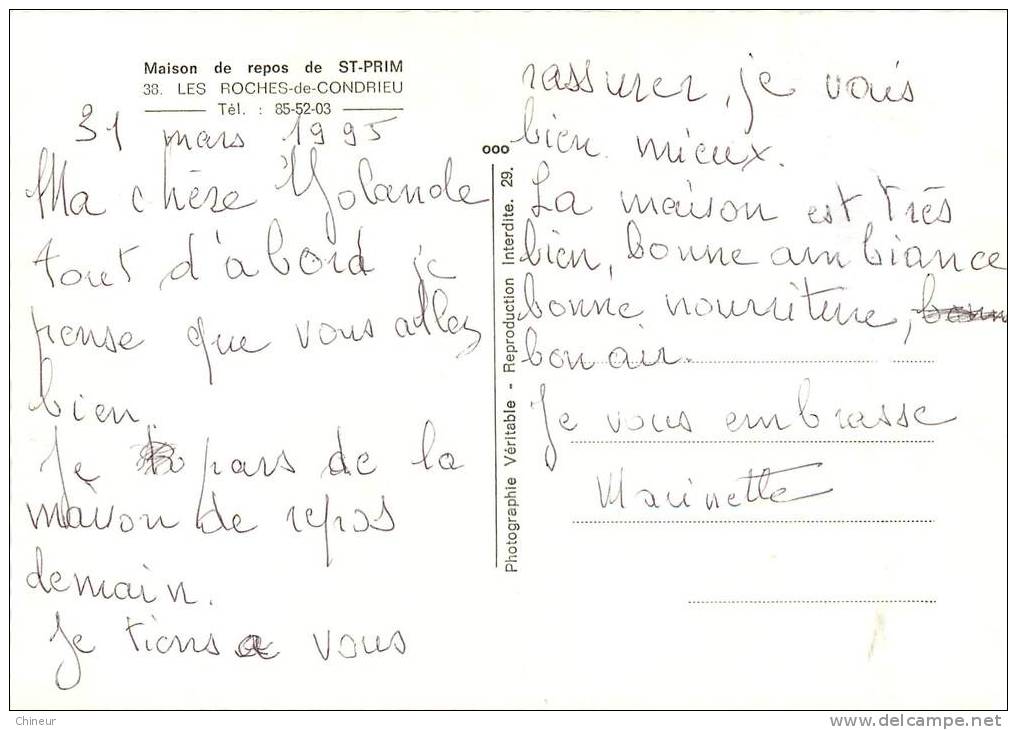 Maison de repos de ST-PRIM
38. LES ROCHES-de-CONDRIEU
Tél. : 85-52-03
31 mars 1995
Ma chère Yolande
tout d'abord je
pense que vous allez
bien.
Je pars de la
maison de repos
demain.
Je tiens a vous
rassurer, je vais
bien mieux.
La maison est très
bien, bonne ambiance
bonne nourriture,
bon air.
Je vous embrasse
Marinette
ooo
Photographie Véritable - Reproduction Interdite. 29.
Chineur
www.delcampe.net